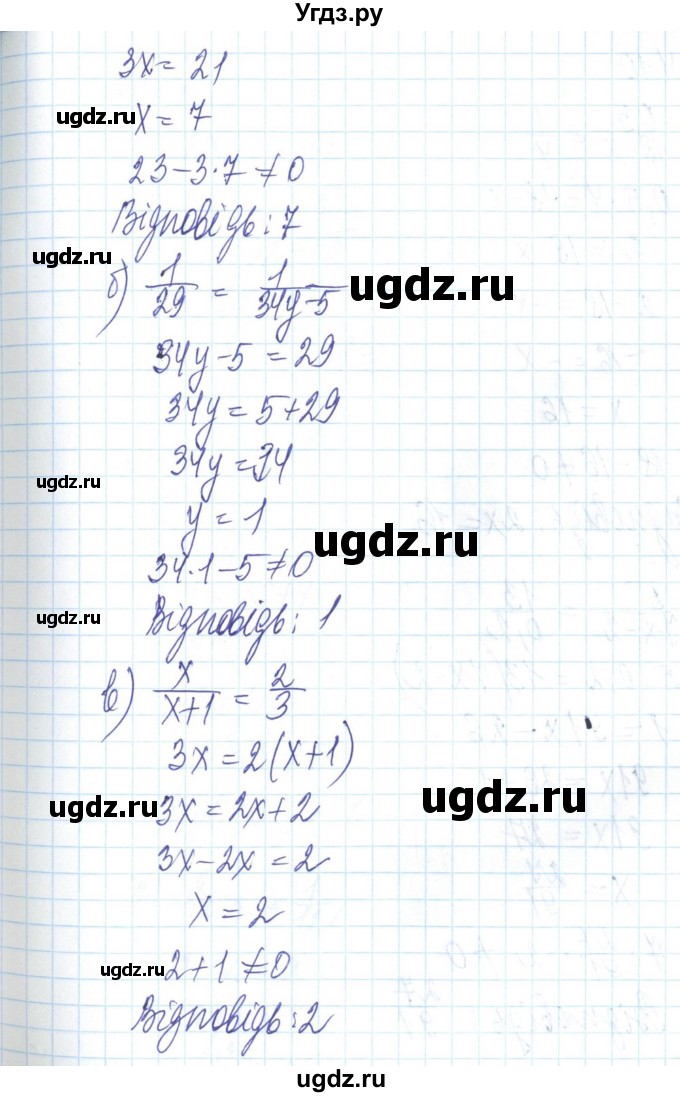 Угдз.ру
3x = 21
ugdz.ru x = 7
23 - 3·7 ≠ 0
Відповідь: 7
ugdz.ru
б) 1/29 = 1/(34y-5) ugdz.ru
34y - 5 = 29
34y = 5 + 29
34y = 34
ugdz.ru
y = 1
ugdz.ru
34·1 - 5 ≠ 0
ugdz.ru
Відповідь: 1
в) x/(x+1) = 2/3
3x = 2(x+1)
ugdz.ru 3x = 2x + 2 ugdz.ru
3x - 2x = 2
x = 2
ugdz.ru 2 + 1 ≠ 0
Відповідь: 2
ugdz.ru